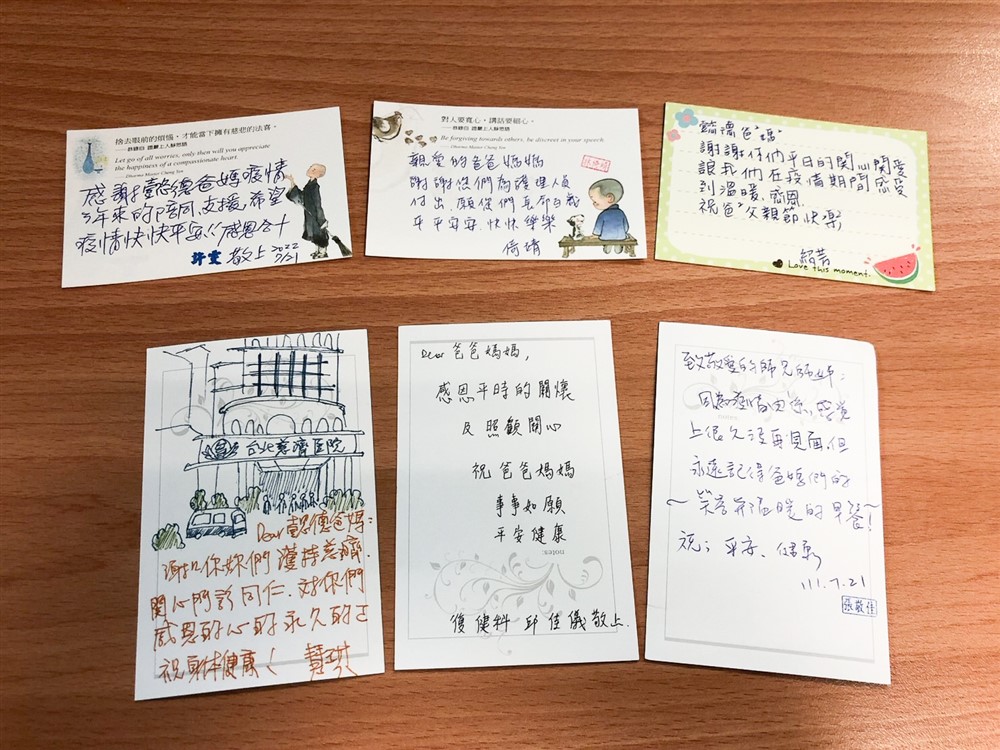 捨去眼前的煩惱，才能當下擁有慈悲的法喜。
──恭錄自 證嚴上人靜思語
Let go of all worries, only then will you appreciate
the happiness of a compassionate heart.
— Dharma Master Cheng Yen
感謝懿德爸媽疫情
3年來的陪同、支援,希望
疫情快快平安!!感恩合十
許雯 敬上 2022
7/21
對人要寬心，講話要細心。
──恭錄自 證嚴上人靜思語
Be forgiving towards others, be discreet in your speech.
— Dharma Master Cheng Yen
親愛的爸爸媽媽
謝謝您們為護理人員
付出,願您們長命百歲
平平安安,快快樂樂
倚靖
懿德爸"媽"
謝謝付們平日的関心関愛
讓我們在疫情期間感受
到溫暖,感恩
祝爸"父親節快樂
Love this moment.
台北慈濟医院
Dear 懿德爸媽:
謝謝你妳們 護持慈濟.
関心門診同仁.对你們
感恩的心的永久的
祝身体健康!
Dear 爸爸媽媽,
感恩平時的關懷
及照顧關心
祝爸爸媽媽
事事如願
平安健康
notes:
復健科 邱佳儀敬上.
致敬愛的師兄師姊:
因為疫情関係,感覺
上很久沒再見面,但
永遠記得爸媽們的
~營養有溫暖的早餐!
祝:平安、健康
111.7.21
張敬佳